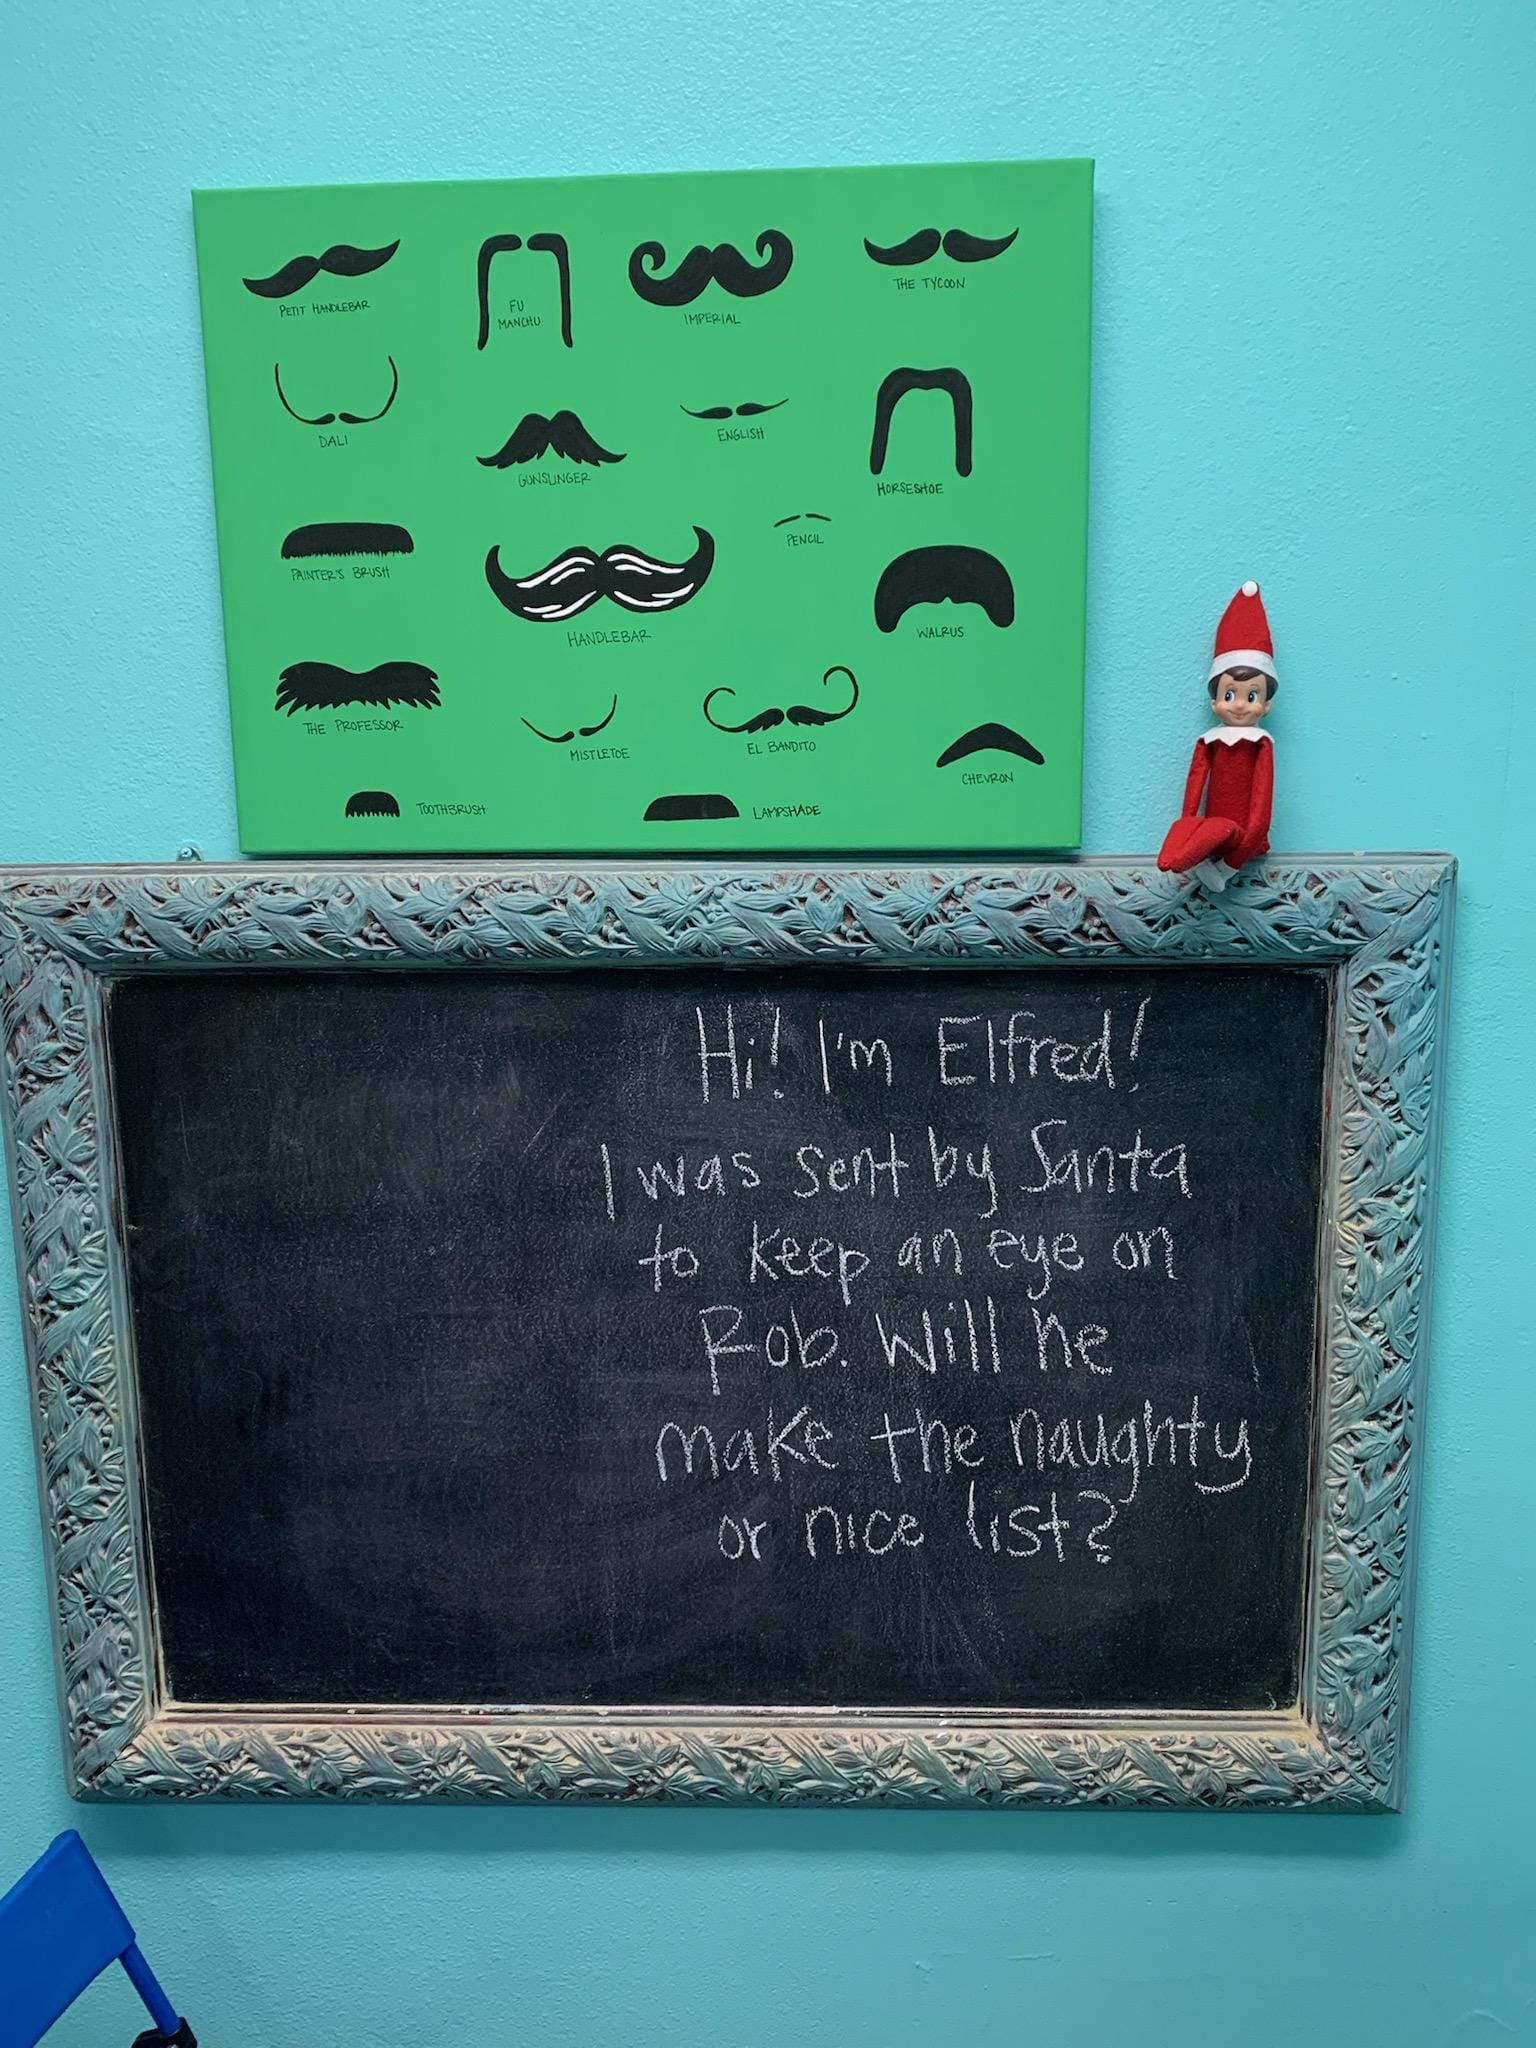 PETIT HANDLEBAR
FU
MANCHU
IMPERIAL
THE TYCOON
DALI
GUNSLINGER
ENGLISH
HORSESHOE
PAINTER'S BRUSH
HANDLEBAR
PENCIL
WALRUS
THE PROFESSOR
MISTLETOE
EL BANDITO
CHEVRON
TOOTHBRUSH
LAMPSHADE
Hi! I'm Elfred!
I was sent by Santa
to keep an eye on
Rob. Will he
make the naughty
or nice list?